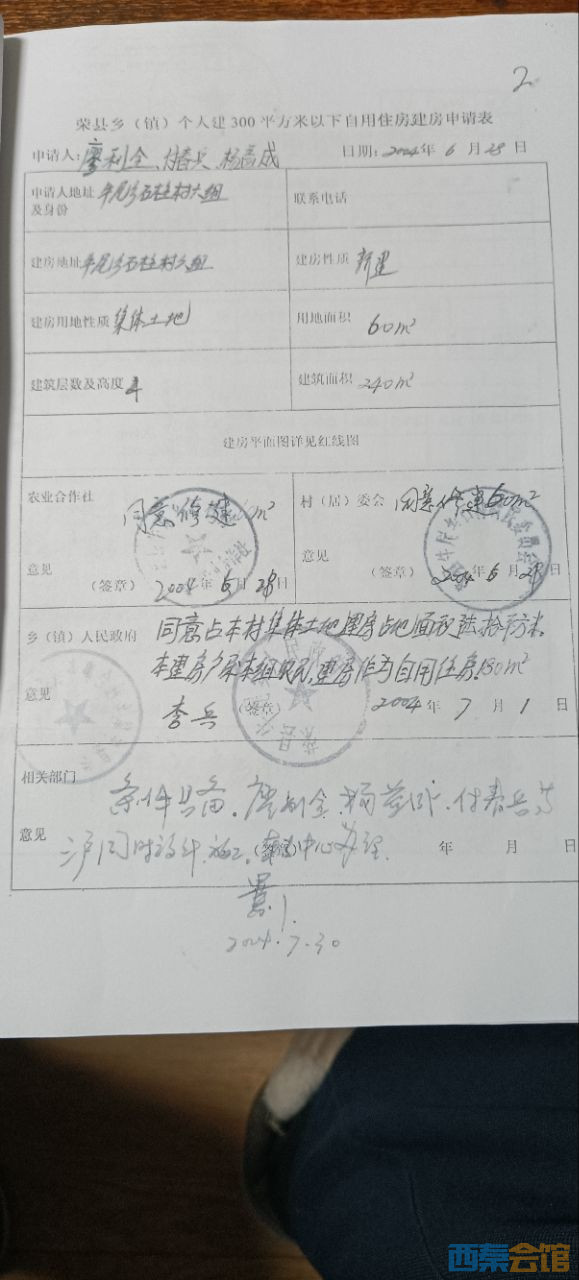 2
荣县乡（镇）个人建300平方米以下自用住房建房申请表
申请人：廖利全、付春兵、杨益成 日期：2004年6月28日
申请人地址及身份 牟尾湾石柱村六组 联系电话
建房地址 牟尾湾石柱村六组 建房性质 新建
建房用地性质 集体土地 用地面积 60m²
建筑层数及高度 4 建筑面积 240m²
建房平面图详见红线图
农业合作社 同意修建 m² 村（居）委会 同意修建60m²
意见 （签章） 2004年6月28日 意见 （签章） 2004年6月28日
乡（镇）人民政府 同意占本村集体土地建房占地面积陆拾平方米，
本建房户原本组农民，建房作为自用住房180m²
意见 李兵 （签章） 2004年7月1日
相关部门 条件具备，廖利全、杨益成、付春兵等
意见 三户同时设计、施工， 中心办理。 （签章） 年 月 日
2004.7.30
西秦会馆